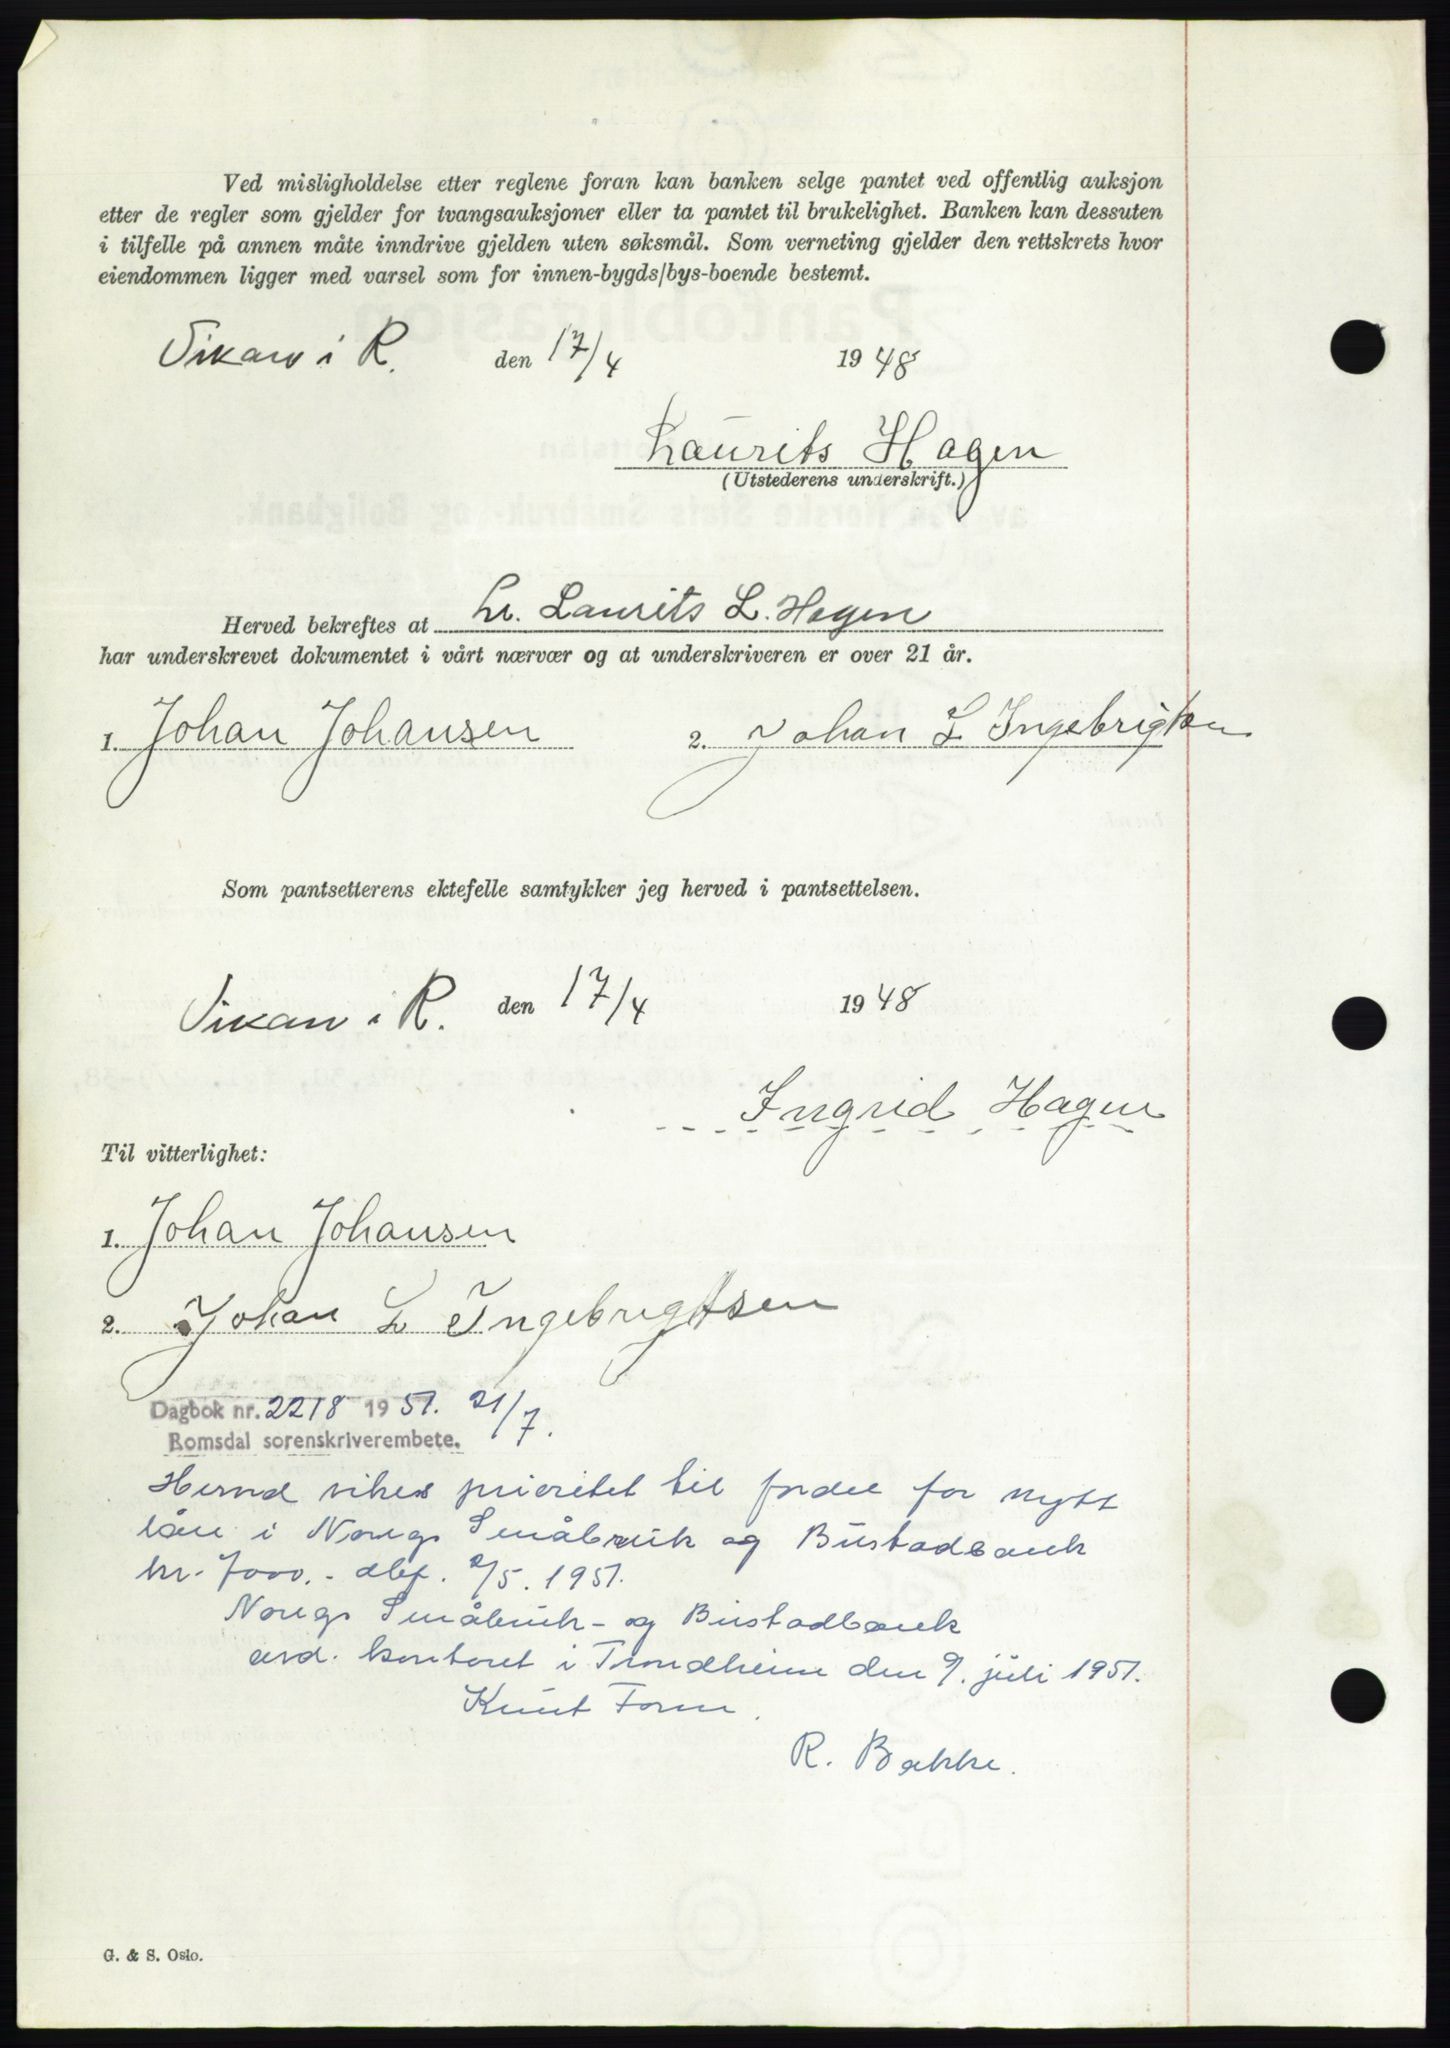 Ved misligholdelse etter reglene foran kan banken selge pantet ved offentlig auksjon
etter de regler som gjelder for tvangsauksjoner eller ta pantet til brukelighet. Banken kan dessuten
i tilfelle på annen måte inndrive gjelden uten søksmål. Som verneting gjelder den rettskrets hvor
eiendommen ligger med varsel som for innen-bygds/bys-boende bestemt.
i R. den 17/4 1948
Laurits Hagen
(Utstederens underskrift.)
Herved bekreftes at hr. Laurits L. Hagen
har underskrevet dokumentet i vårt nærvær og at underskriveren er over 21 år.
1. Johan Johansen 2. Johan L Ingebrigtsen
Som pantsetterens ektefelle samtykker jeg herved i pantsettelsen.
i R. den 17/4 1948
Ingrid Hagen
Til vitterlighet:
1. Johan Johansen
2. Johan L Ingebrigtsen
Dagbok nr. 2218 1951. 21/7.
Romsdal sorenskriverembete.
Herved vikes prioritet til fordel for nytt
lån i Noregs Småbruk og Bustadbank
kr. 7000.- dat. 2/5. 1951.
Noregs Småbruk- og Bustadbank
avd. kontoret i Trondheim den 9. juli 1951.
Knut
R. Bakke.
G. & S. Oslo.